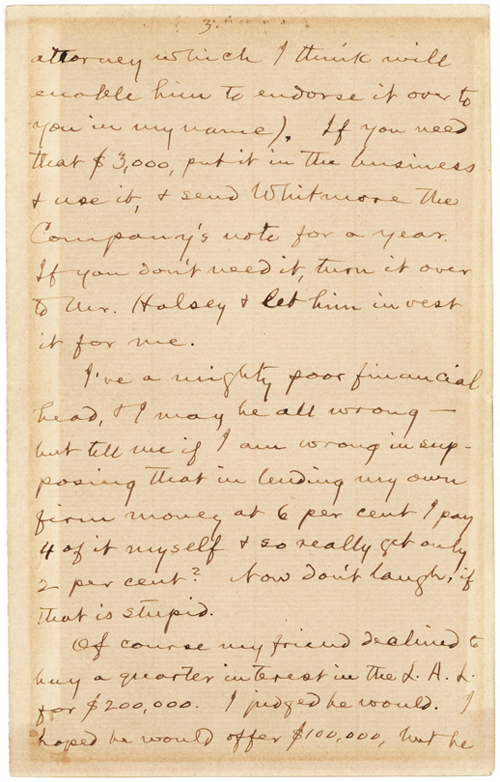 3.
attorney which I think will
enable him to endorse it over to
you in my name). If you need
that $3,000, put it in the business
& use it, & send Whitmore the
Company's note for a year.
If you don't need it, turn it over
to Mr. Halsey & let him invest
it for me.
I've a mighty poor financial
head, & I may be all wrong —
but tell me if I am wrong in sup-
posing that in lending my own
firm money at 6 per cent I pay
4 of it myself & so really get only
2 per cent? Now don't laugh, if
that is stupid.
Of course my friend declined to
buy a quarter interest in the L. A. L.
for $200,000. I judged he would. I
hoped he would offer $100,000, but he